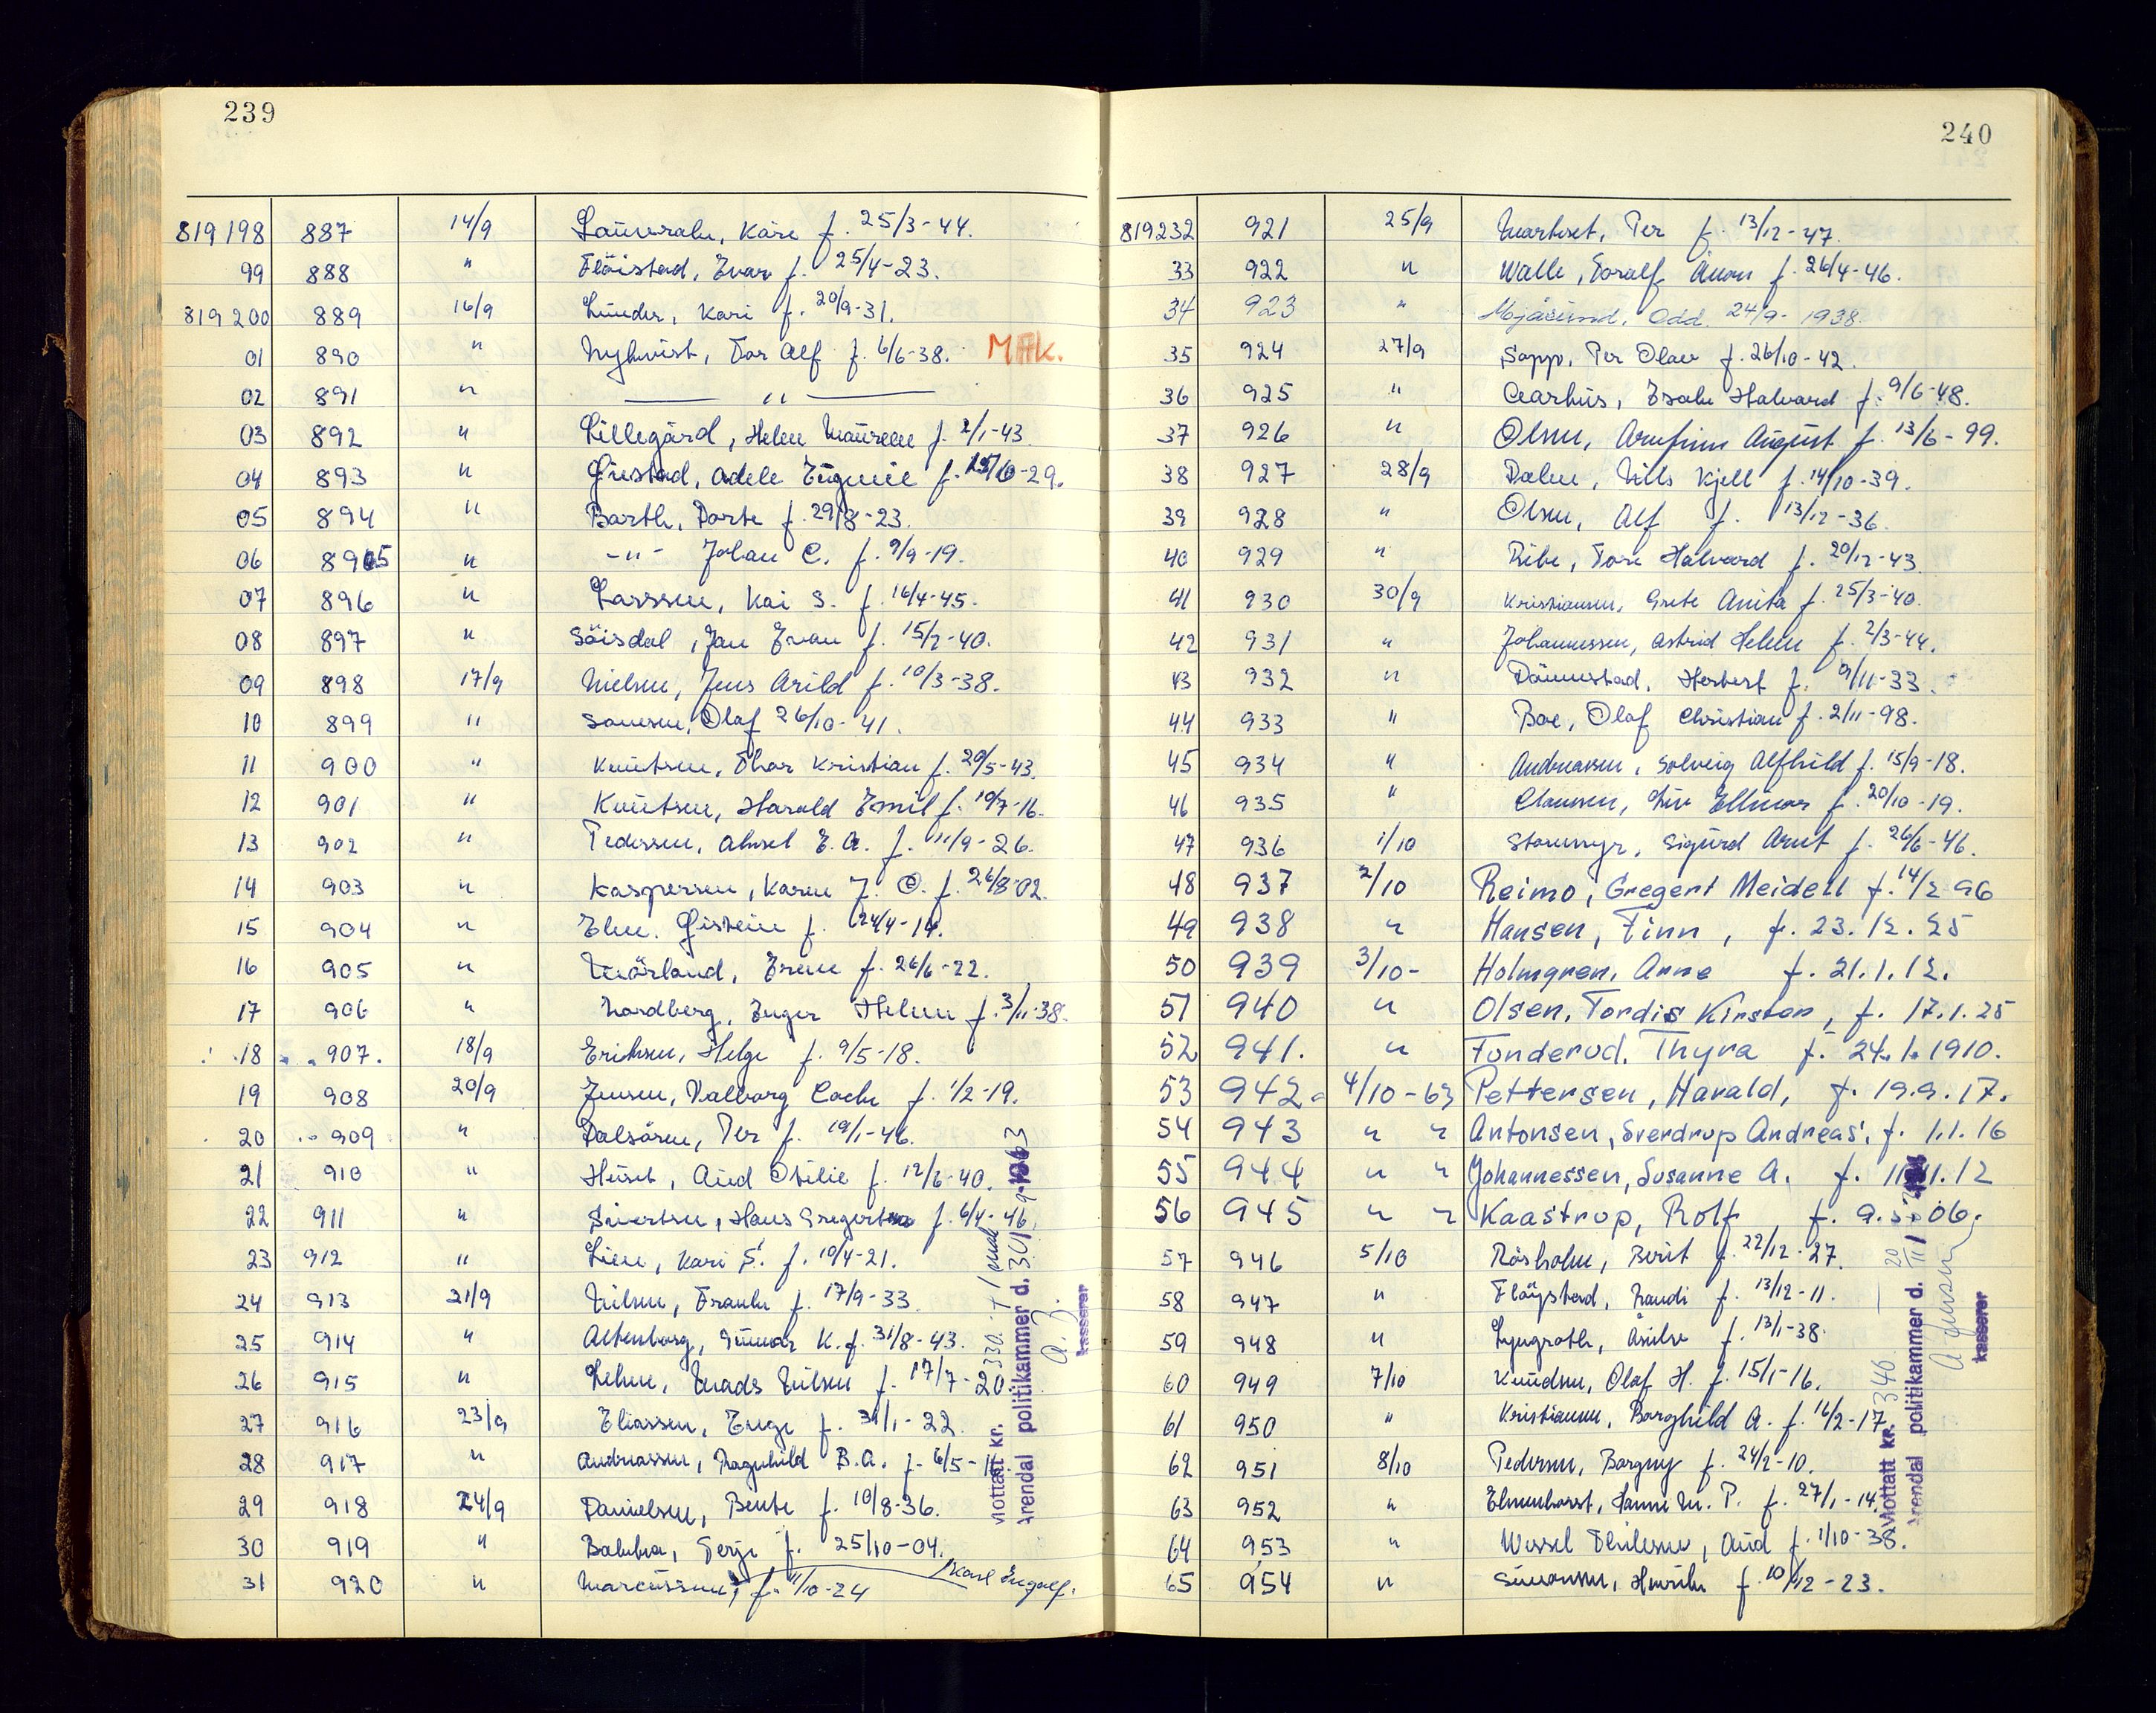 239
819198 887 14/9 Kåre f. 25/3-44.
99 888 " Flöistad, Evar f. 25/4-23.
819200 889 16/9 Lunder, Kari f. 20/9-31.
01 890 " Nykvist, Tor Alf f. 6/6-38. MAK.
02 891 " — " —
03 892 " Lillegård, Helen Maureen f. 2/1-43.
04 893 " Gjestad, Adele Eugenie f. -29.
05 894 " Barth, Dorte f. 29/8-23.
06 895 " -"- Johan C. f. 9/9-19.
07 896 " Larssen, Kai S. f. 16/4-45.
08 897 " Söisdal, Jan Evan f. 15/2-40.
09 898 17/9 Nielsen, Jens Arild f. 10/3-38.
10 899 " Olaf 26/10-41.
11 900 " Knutsen, Thor Kristian f. 20/5-43.
12 901 " Knutsen, Harald Emil f. 10/7-16.
13 902 " Pedersen, Aksel E.A. f. 11/9-26.
14 903 " Kaspersen, Karen J. O. f. 26/8-02.
15 904 " f. 24/4-14.
16 905 " Mörland, Irene f. 26/6-22.
17 906 " Nordberg, Inger Helene f. 3/11-38.
18 907. 18/9 Eriksen, Helge f. 9/5-18.
19 908 20/9 Jensen, Valborg f. 1/2-19.
20 909 " Dalsören, Per f. 19/1-46.
21 910 " Huseb, Aud Otilie f. 12/6-40.
22 911 " Sivertsen, Hans Gregert f. 6/4-46.
23 912 " Lien, Kari S. f. 10/4-21.
24 913 21/9 Nilsen, Frank f. 17/9-33.
25 914 " Altenborg, Gunnar K. f. 31/8-43.
26 915 " Lehne, Mads Nilsen f. 17/7-20.
27 916 23/9 Eliassen, Inge f. 31/1-22.
28 917 " Andreassen, Ragnhild B.A. f. 6/5-
29 918 24/9 Danielsen, Bente f. 10/8-36.
30 919 " Bakka, Terje f. 25/10-04.
31 920 " Marcussen, f. 11/10-24 Karl Ingolf.
Mottatt kr. 330.-
Arendal politikammer d. 30/9-1963
kasserer
240
819232 921 25/9 Per f. 13/12-47.
33 922 " Walle, Toralf Anon f. 26/4-46.
34 923 " Mjåsund, Odd. 24/9-1938.
35 924 27/9 Sopp, Per Olav f. 26/10-42.
36 925 " Aarhus, Isak Halvard f. 9/6-48.
37 926 " Olsen, Arnfinn August f. 13/6-99.
38 927 28/9 Dalen, Nills Kjell f. 14/10-39.
39 928 " Olsen, Alf f. 13/12-36.
40 929 " Ribe, Tore Halvard f. 20/12-43.
41 930 30/9 Kristiansen, Grete Anita f. 25/3-40.
42 931 " Johannessen, Astrid Helene f. 2/3-44.
43 932 " Dännestad, Herbert f. 9/11-33.
44 933 " Boe, Olaf Christian f. 2/11-98.
45 934 " Andreassen, Solveig Alfhild f. 15/9-18.
46 935 " Clausen, Liv Ellinor f. 20/10-19.
47 936 1/10 Stormyr, Sigurd Arnt f. 26/6-46.
48 937 2/10 Reimo, Gregert Meidell f. 14/2 96
49 938 " Hansen, Finn, f. 23.12.25
50 939 3/10- Holmgren, Anne f. 21.1.12.
51 940 " Olsen, Tordis Kirsten, f. 17.1.25
52 941. " Funderud, Thyra f. 24.1.1910.
53 942 4/10-63 Pettersen, Harald, f. 19.9.17.
54 943 " " Antonsen, Sverdrup Andreas, f. 1.1.16
55 944 " " Johannessen, Susanne A. f. 11.11.12
56 945 " " Kaastrup, Rolf f. 9.5.06.
57 946 5/10 Råsholm, Berit f. 22/12-27.
58 947 " Flöystad, Randi f. 13/12-11.
59 948 " Lyngroth, f. 13/1-38.
60 949 7/10 Knudsen, Olaf H. f. 15/1-16.
61 950 " Kristiansen, Borghild A. f. 16/2-17.
62 951 8/10 Pedersen, Borgny f. 24/2-10.
63 952 " Elmenhorst, Hanne M. P. f. 27/1-14.
64 953 " Wessel Thilesen, Aud f. 1/10-38.
65 954 " Simonsen, Henrik f. 10/12-23.
Mottatt kr. 346
Arendal politikammer d.
kasserer